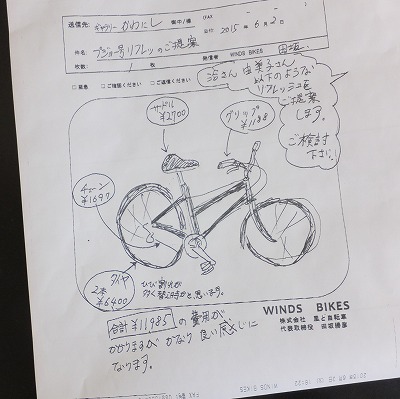 送信先: ギャラリー かわにし 御中/様 (FAX
日付: 2015年 6月 2日
件名: プジョー号リフレッシュのご提案
枚数: 1 枚
発信者 WINDS BIKES 田坂
至急 □ ご確認ください □ ご返信ください
さん 由美子さん
以下のような
リフレッシュを
ご提案
します。
ご検討
下さい。
サドル
¥2700
グリップ
¥1188
チェーン
¥1697
タイヤ
2本
¥6400
ひび割れが
多く替え時かと思います。
合計 ¥11985 の費用が
かかりますが かなり良い感じに
なります。
WINDS BIKES
株式会社 風と自転車
代表取締役 田坂勝彦